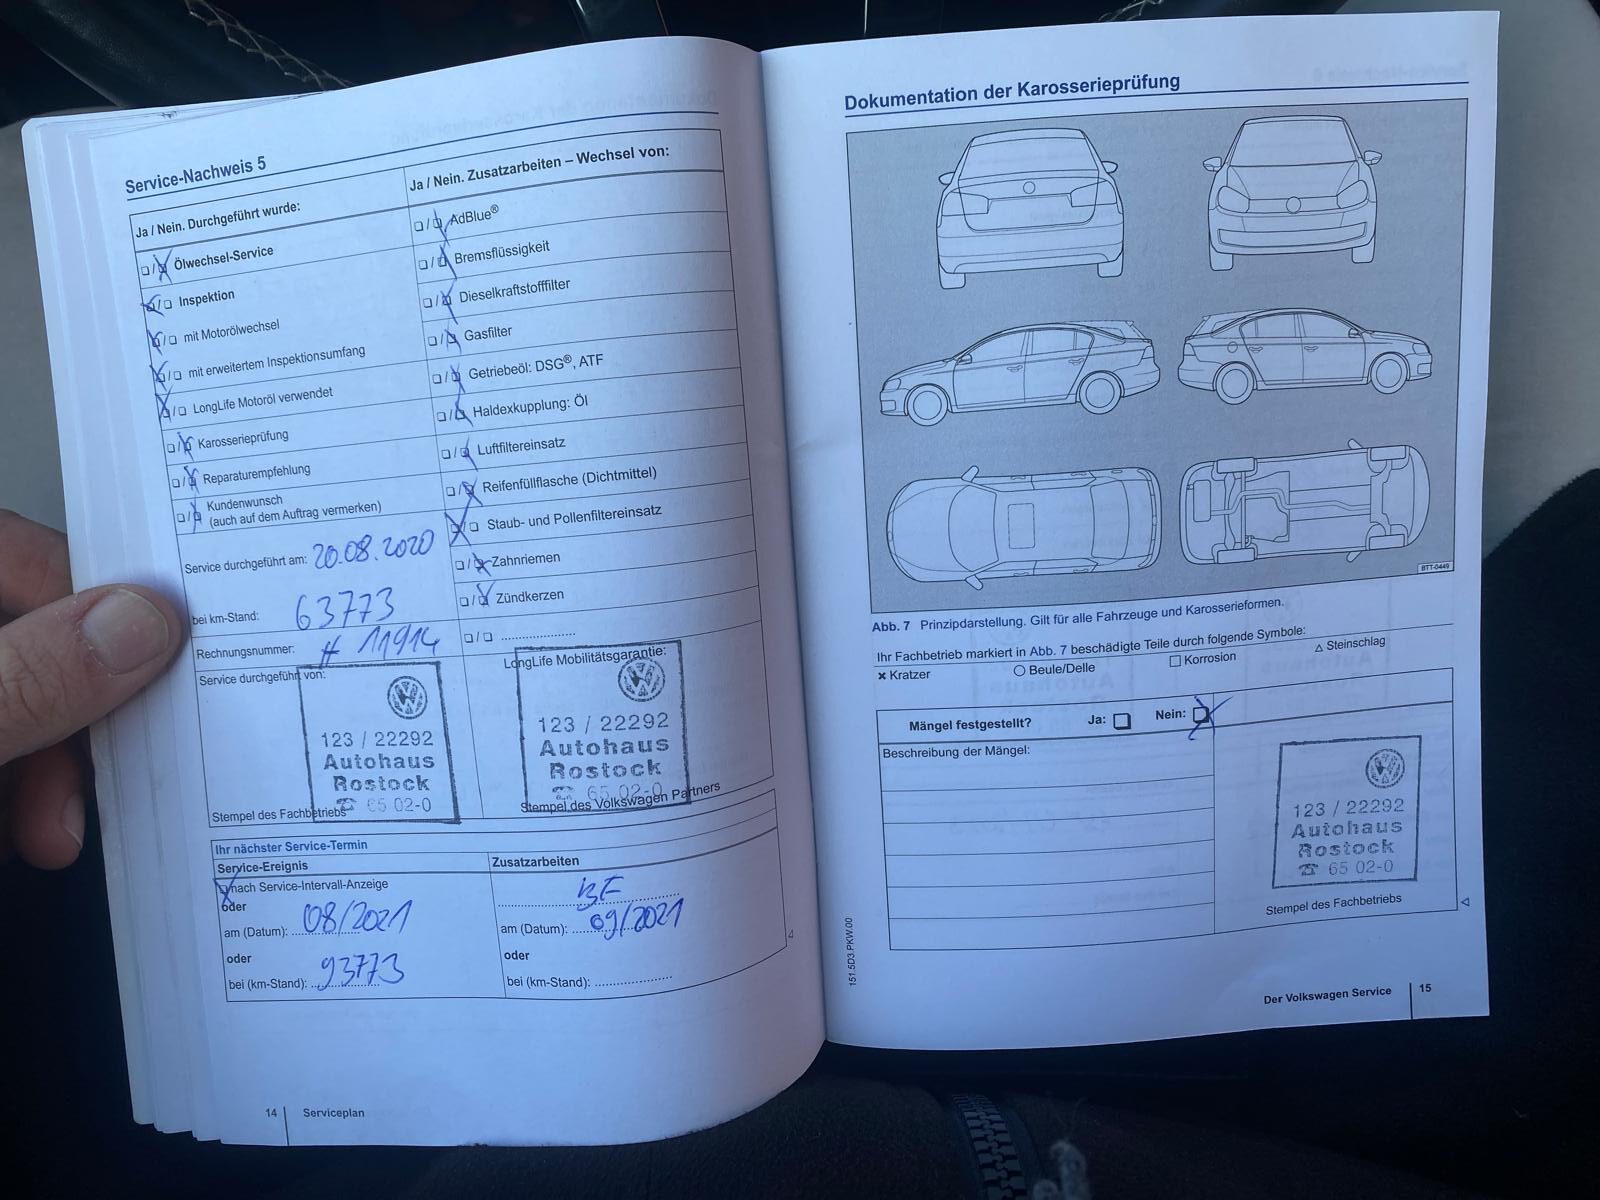 Service-Nachweis 5
Ja / Nein. Durchgeführt wurde:
Ölwechsel-Service
Inspektion
mit Motorölwechsel
mit erweitertem Inspektionsumfang
LongLife Motoröl verwendet
Karosserieprüfung
Reparaturempfehlung
Kundenwunsch
(auch auf dem Auftrag vermerken)
Service durchgeführt am: 20.08.2020
bei km-Stand: 63773
Rechnungsnummer: # 11914
Service durchgeführt von:
123 / 22292
Autohaus
Rostock
☎ 65 02-0
Stempel des Fachbetriebs
Ja / Nein. Zusatzarbeiten – Wechsel von:
AdBlue®
Bremsflüssigkeit
Dieselkraftstofffilter
Gasfilter
Getriebeöl: DSG®, ATF
Haldexkupplung: Öl
Luftfiltereinsatz
Reifenfüllflasche (Dichtmittel)
Staub- und Pollenfiltereinsatz
Zahnriemen
Zündkerzen
LongLife Mobilitätsgarantie:
123 / 22292
Autohaus
Rostock
☎ 65 02-0
Stempel des Volkswagen Partners
Ihr nächster Service-Termin
Service-Ereignis
nach Service-Intervall-Anzeige
oder
am (Datum): 08/2021
oder
bei (km-Stand): 93773
Zusatzarbeiten
BF
am (Datum): 09/2021
oder
bei (km-Stand):
14 Serviceplan
Dokumentation der Karosserieprüfung
BTT-0449
Abb. 7 Prinzipdarstellung. Gilt für alle Fahrzeuge und Karosserieformen.
Ihr Fachbetrieb markiert in Abb. 7 beschädigte Teile durch folgende Symbole:
× Kratzer ○ Beule/Delle □ Korrosion △ Steinschlag
Mängel festgestellt? Ja: Nein:
Beschreibung der Mängel:
123 / 22292
Autohaus
Rostock
☎ 65 02-0
Stempel des Fachbetriebs
151.5D3.PKW.00
Der Volkswagen Service 15